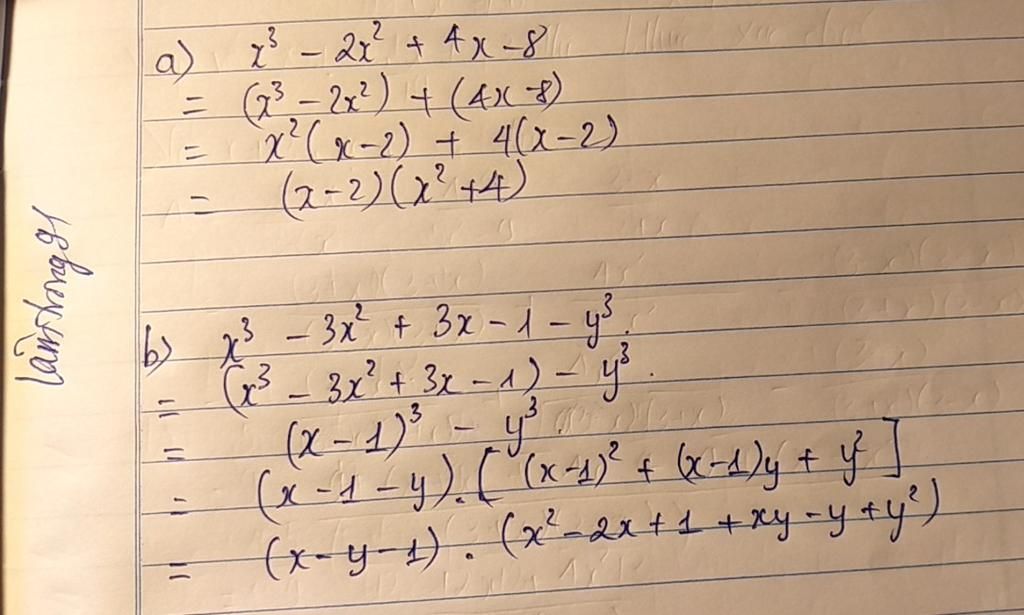 a) x³ - 2x² + 4x - 8
= (x³ - 2x²) + (4x - 8)
= x²(x - 2) + 4(x - 2)
= (x - 2)(x² + 4)
b) x³ - 3x² + 3x - 1 - y³.
= (x³ - 3x² + 3x - 1) - y³.
= (x - 1)³ - y³.
= (x - 1 - y).[(x - 1)² + (x - 1)y + y²]
= (x - y - 1).(x² - 2x + 1 + xy - y + y²)